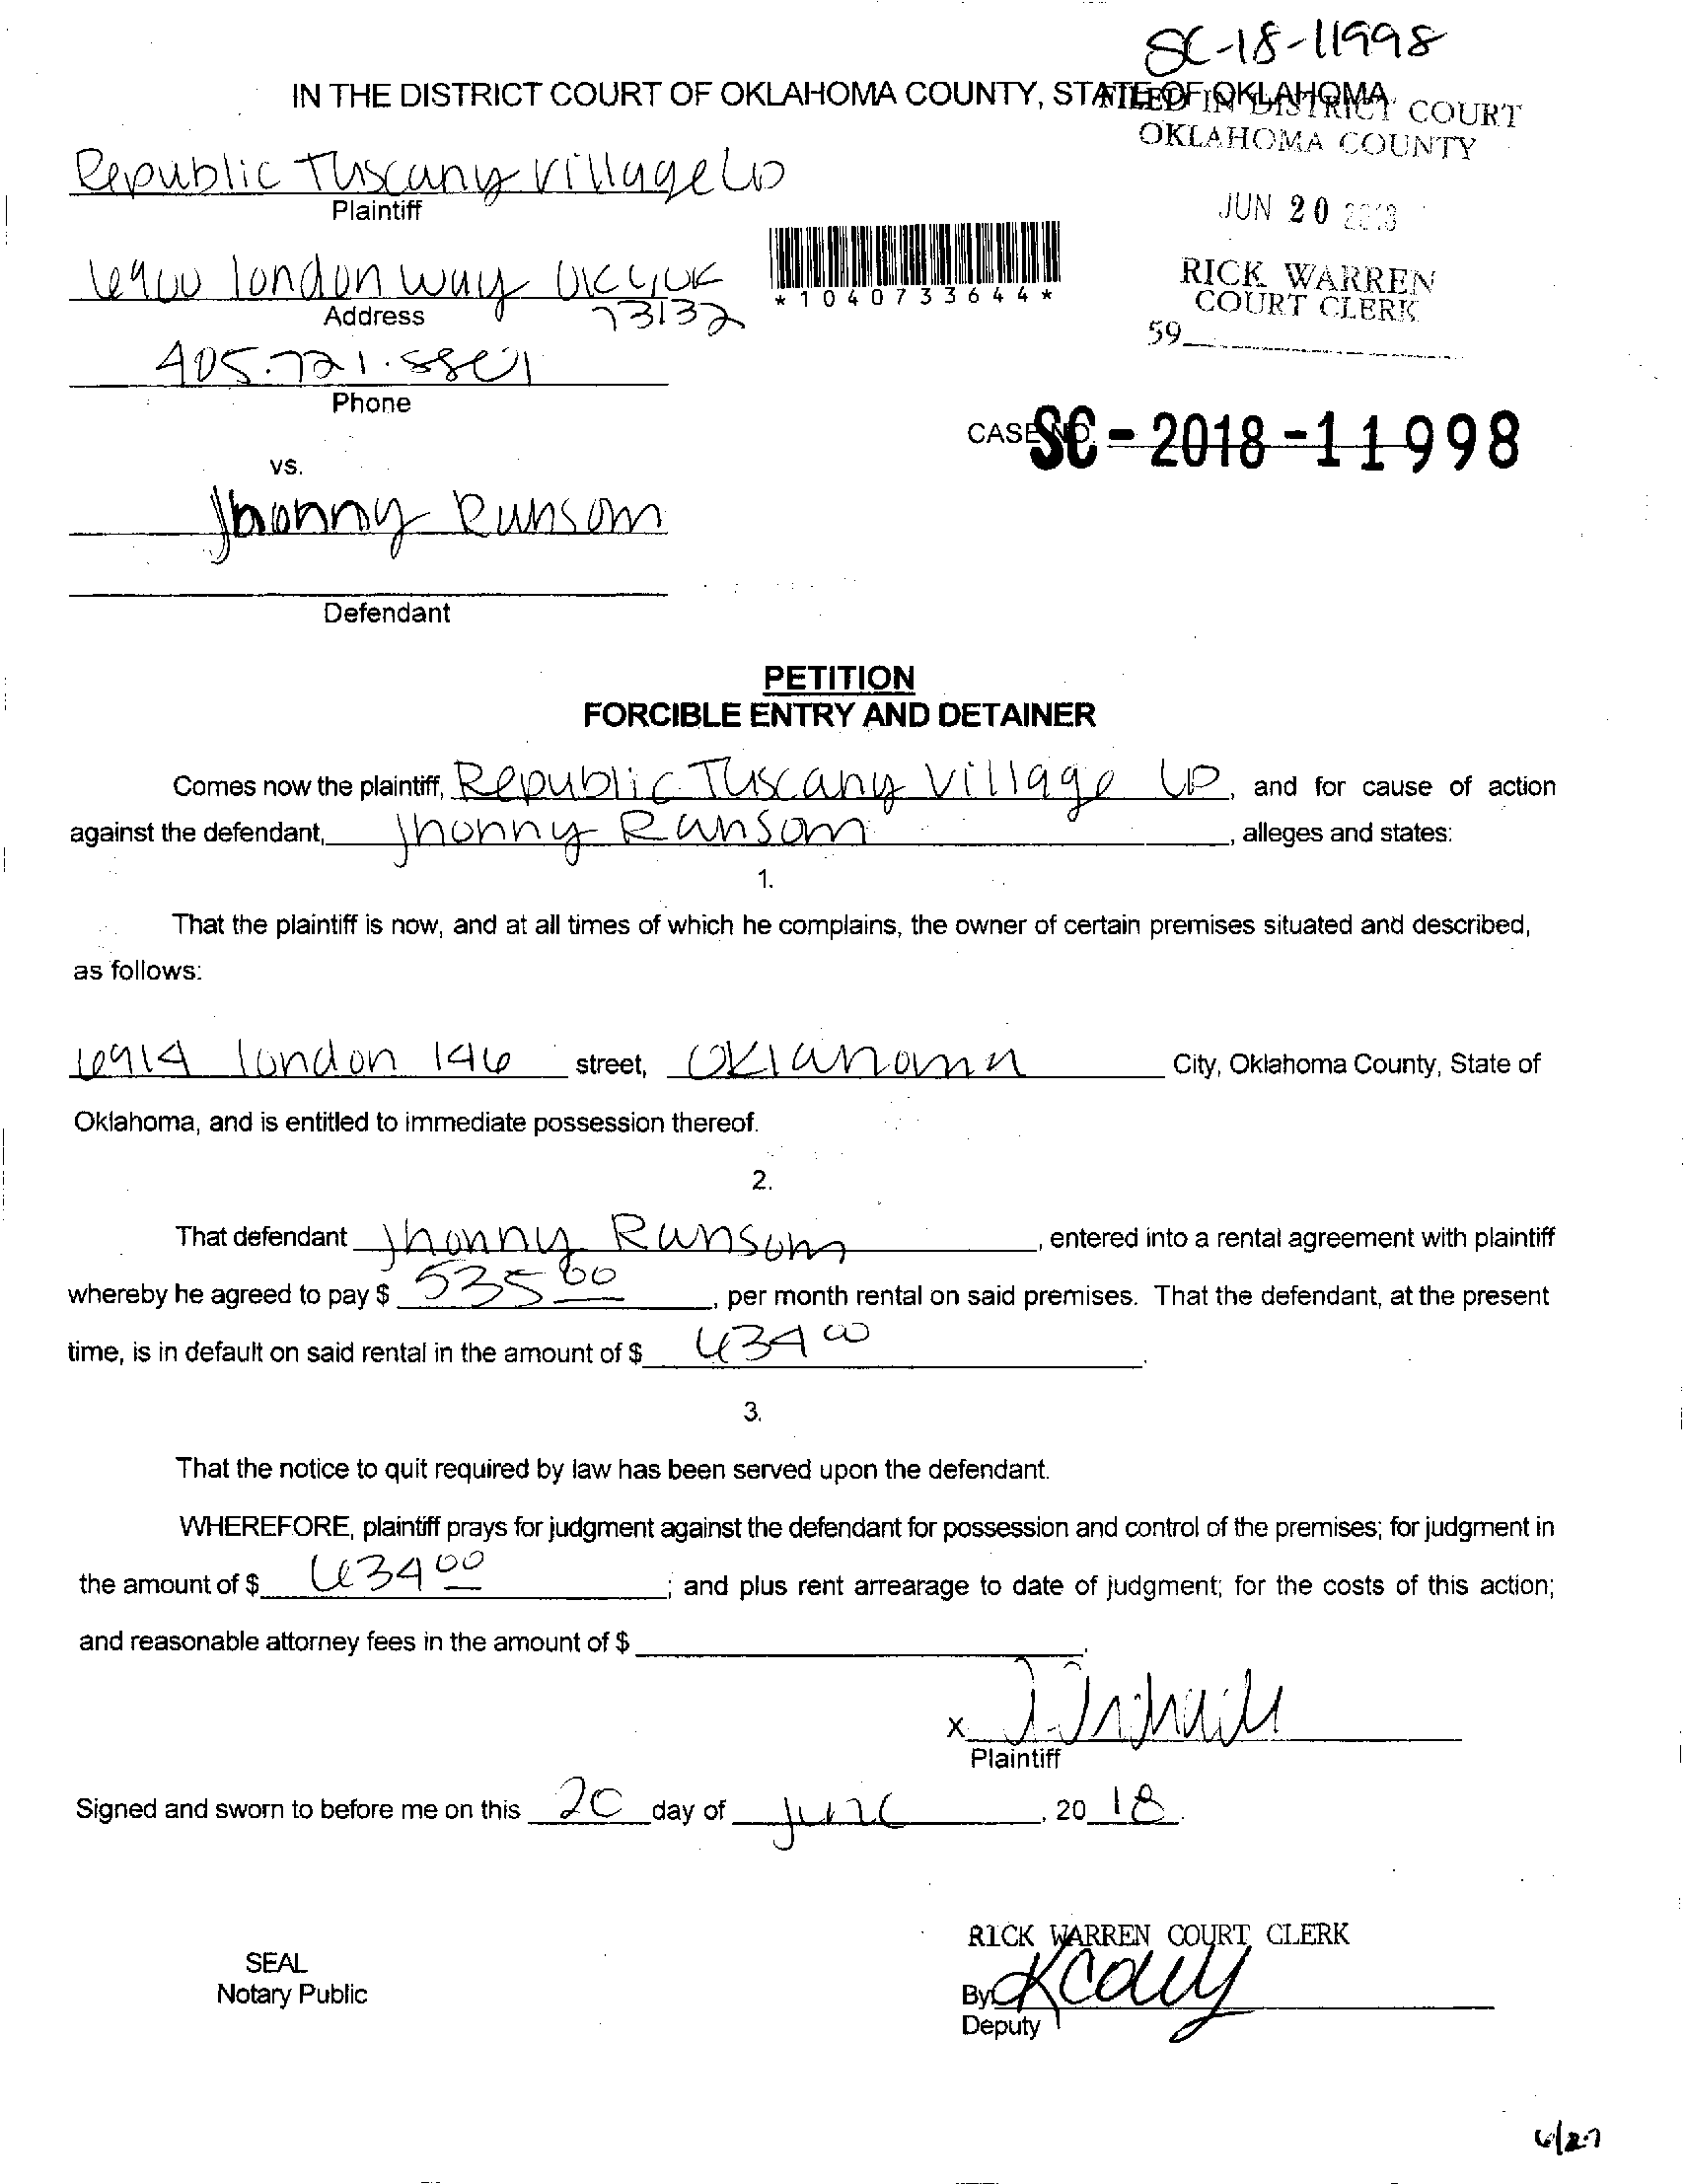 SC-18-11998
IN THE DISTRICT COURT OF OKLAHOMA COUNTY, STATE OF OKLAHOMA
FILED IN DISTRICT COURT
OKLAHOMA COUNTY
Republic Tuscany Village LP
Plaintiff
JUN 20 2018
6900 london way OKC, OK
73132
Address
*1040733644*
RICK WARREN
COURT CLERK
59
405.721.
Phone
CASE NO. SC-2018-11998
vs.
Jhonny Ransom
Defendant
PETITION
FORCIBLE ENTRY AND DETAINER
Comes now the plaintiff, Republic Tuscany Village LP, and for cause of action
against the defendant, Jhonny Ransom, alleges and states:
1.
That the plaintiff is now, and at all times of which he complains, the owner of certain premises situated and described,
as follows:
6914 london 146 street, Oklahoma City, Oklahoma County, State of
Oklahoma, and is entitled to immediate possession thereof.
2.
That defendant Jhonny Ransom, entered into a rental agreement with plaintiff
whereby he agreed to pay $ 535 00, per month rental on said premises. That the defendant, at the present
time, is in default on said rental in the amount of $ 634 00.
3.
That the notice to quit required by law has been served upon the defendant.
WHEREFORE, plaintiff prays for judgment against the defendant for possession and control of the premises; for judgment in
the amount of $ 634 00; and plus rent arrearage to date of judgment; for the costs of this action;
and reasonable attorney fees in the amount of $.
X
Plaintiff
Signed and sworn to before me on this 20 day of June, 20 18.
RICK WARREN COURT CLERK
SEAL
Notary Public
By
Deputy
6/27